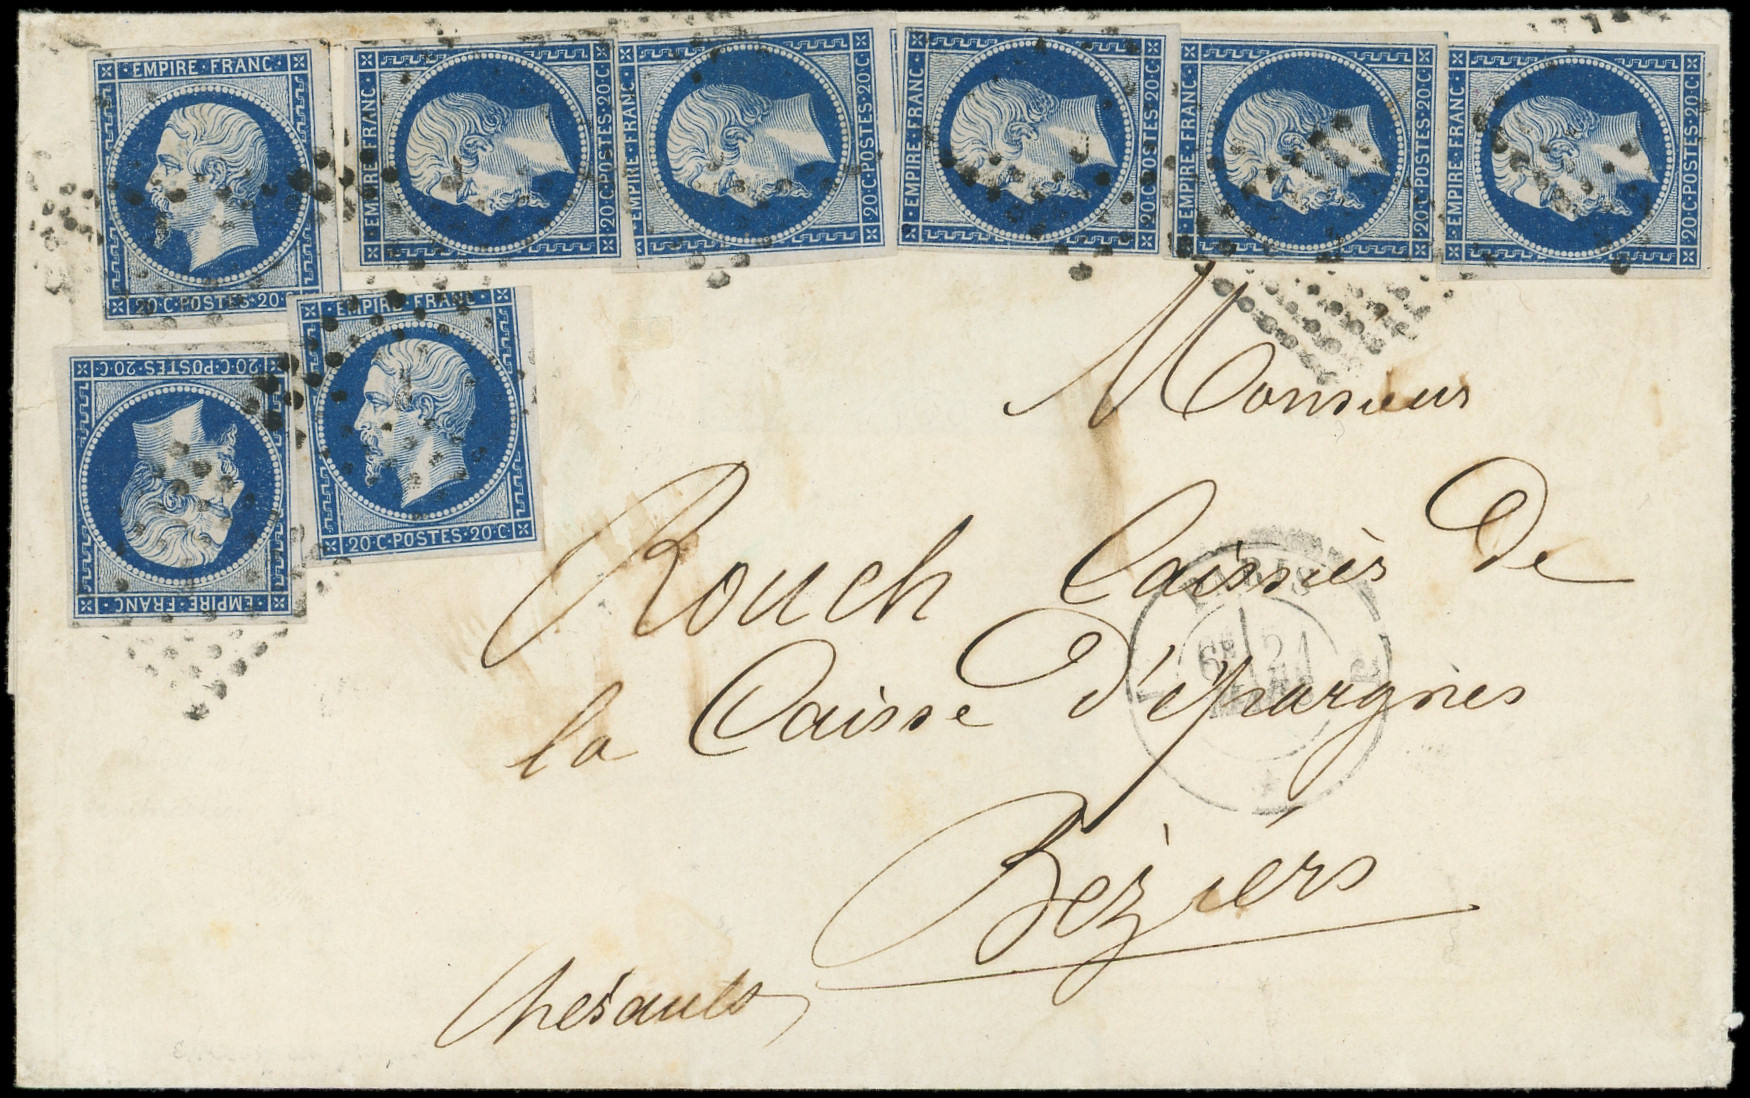 EMPIRE·FRANC·
20·C·POSTES·20·C
EMPIRE·FRANC·
20·C·POSTES·20·C
EMPIRE·FRANC·
20·C·POSTES·20·C
EMPIRE·FRANC·
20·C·POSTES·20·C
EMPIRE·FRANC·
20·C·POSTES·20·C
EMPIRE·FRANC·
20·C·POSTES·20·C
EMPIRE·FRANC·
20·C·POSTES·20·C
EMPIRE·FRANC·
20·C·POSTES·20·C
Monsieur
Rouch Caissier de
la Caisse d'épargnes
Béziers
Hérault
PARIS
6E 21
MARS